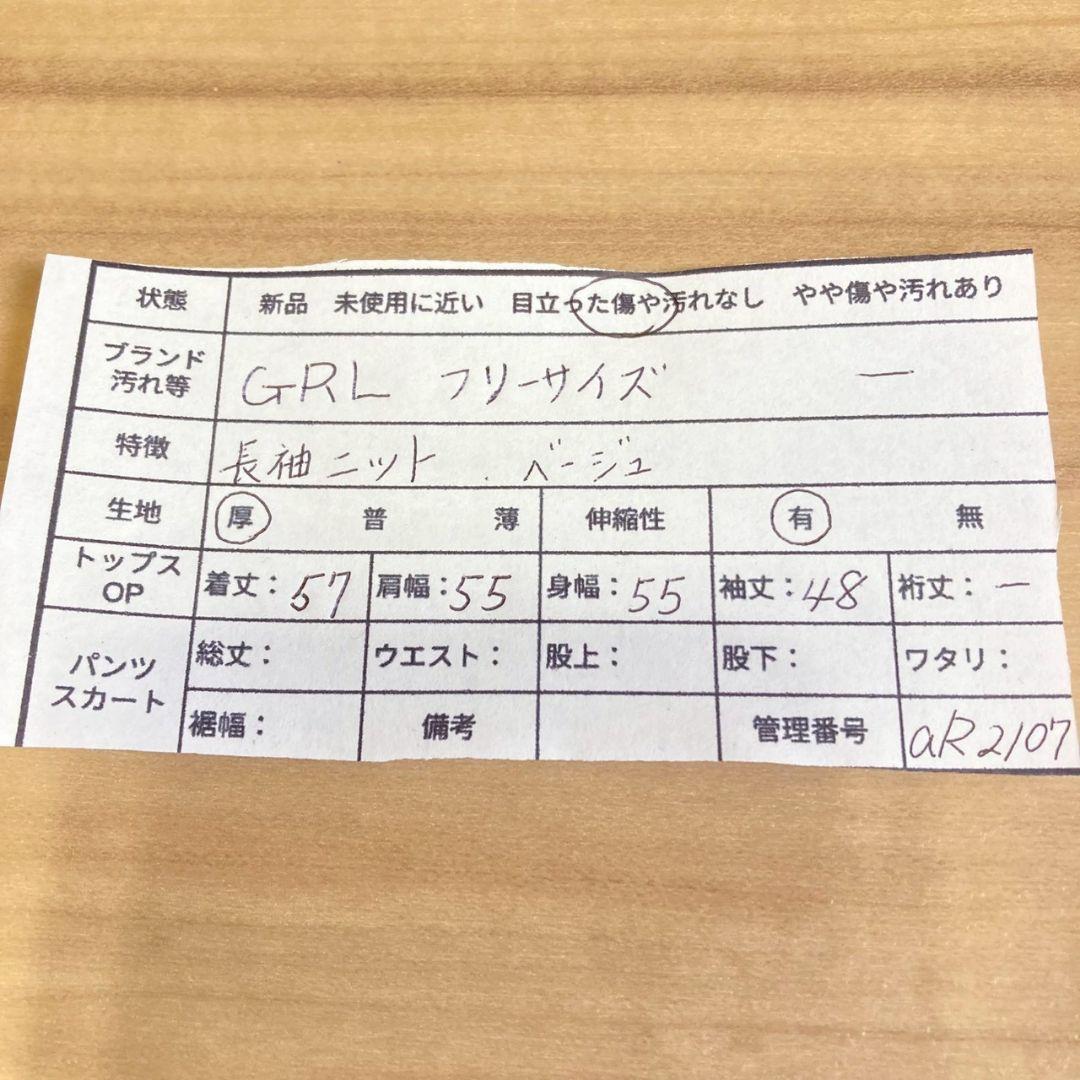 状態 新品 未使用に近い 目立った傷や汚れなし やや傷や汚れあり
ブランド
汚れ等 GRL フリーサイズ ー
特徴 長袖ニット ベージュ
生地 厚 普 薄 伸縮性 有 無
トップス
OP 着丈：57 肩幅：55 身幅：55 袖丈：48 裄丈：ー
パンツ
スカート 総丈： ウエスト： 股上： 股下： ワタリ：
裾幅： 備考 管理番号 aR2107